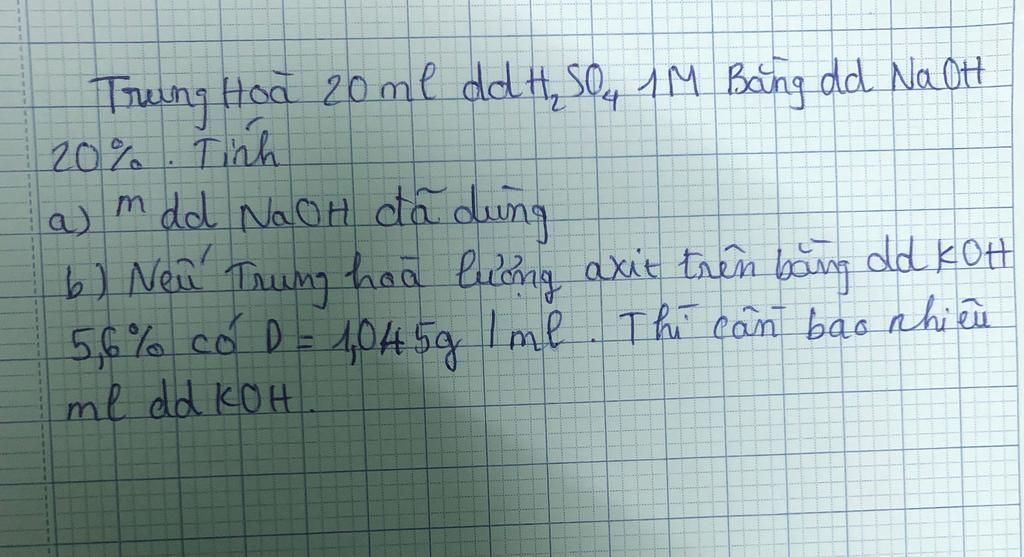 Trung Hoà 20 ml dd H₂SO₄ 1M Bằng dd NaOH
20%. Tính
a) m dd NaOH đã dùng
b) Nếu Trung hoà lượng axit trên bằng dd KOH
5,6% có D = 1,045g / ml. Thì cần bao nhiêu
ml dd KOH.